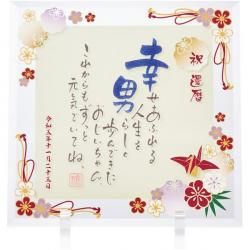 祝還暦
幸せあふれる
人生を
男らしく
歩んできた
おじいちゃん。
これからもずっと
元気でいてね。
令和三年十一月二十五日